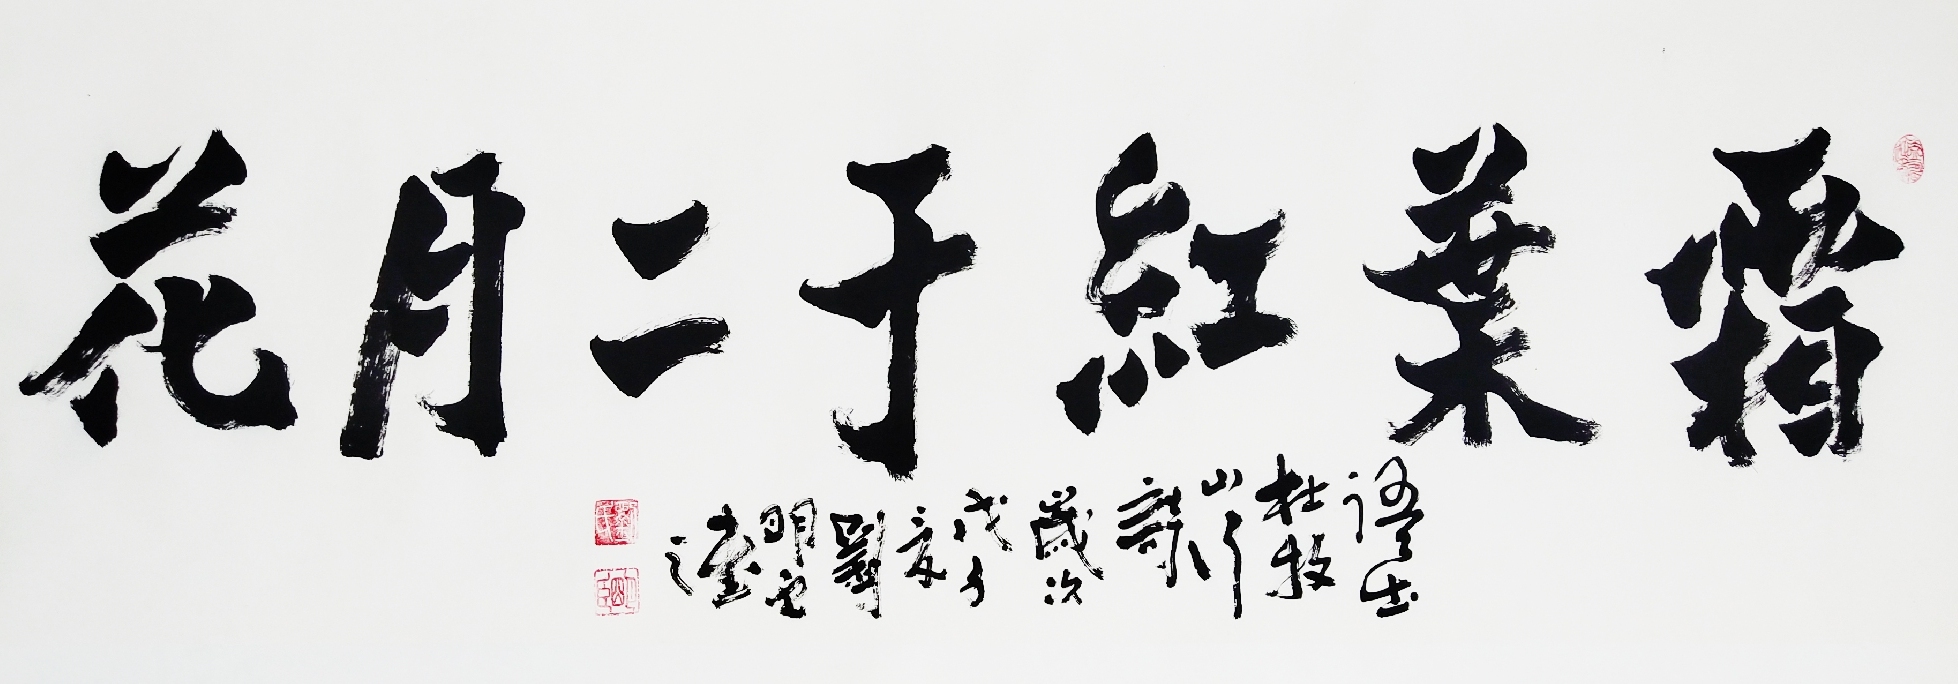 霜葉紅于二月花
語出
杜牧
山行
詩
歲次
戊子
夏
劉
明
書